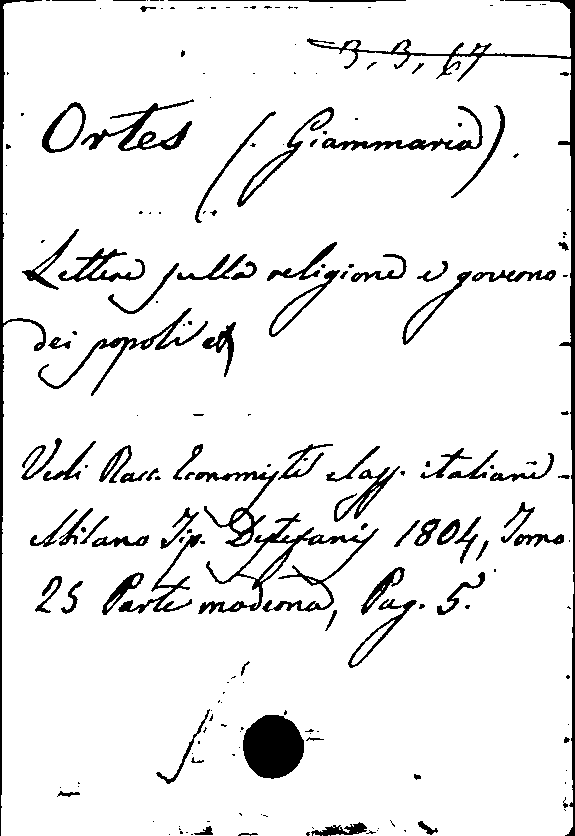 3, 3, 67
Ortes (. Giammaria).
Lettere sulla religione e governo
dei popoli
Vedi Racc. Economisti class. italiani
Milano Tip. Destefanis 1804, Tomo
25 Parte moderna, Pag. 5.